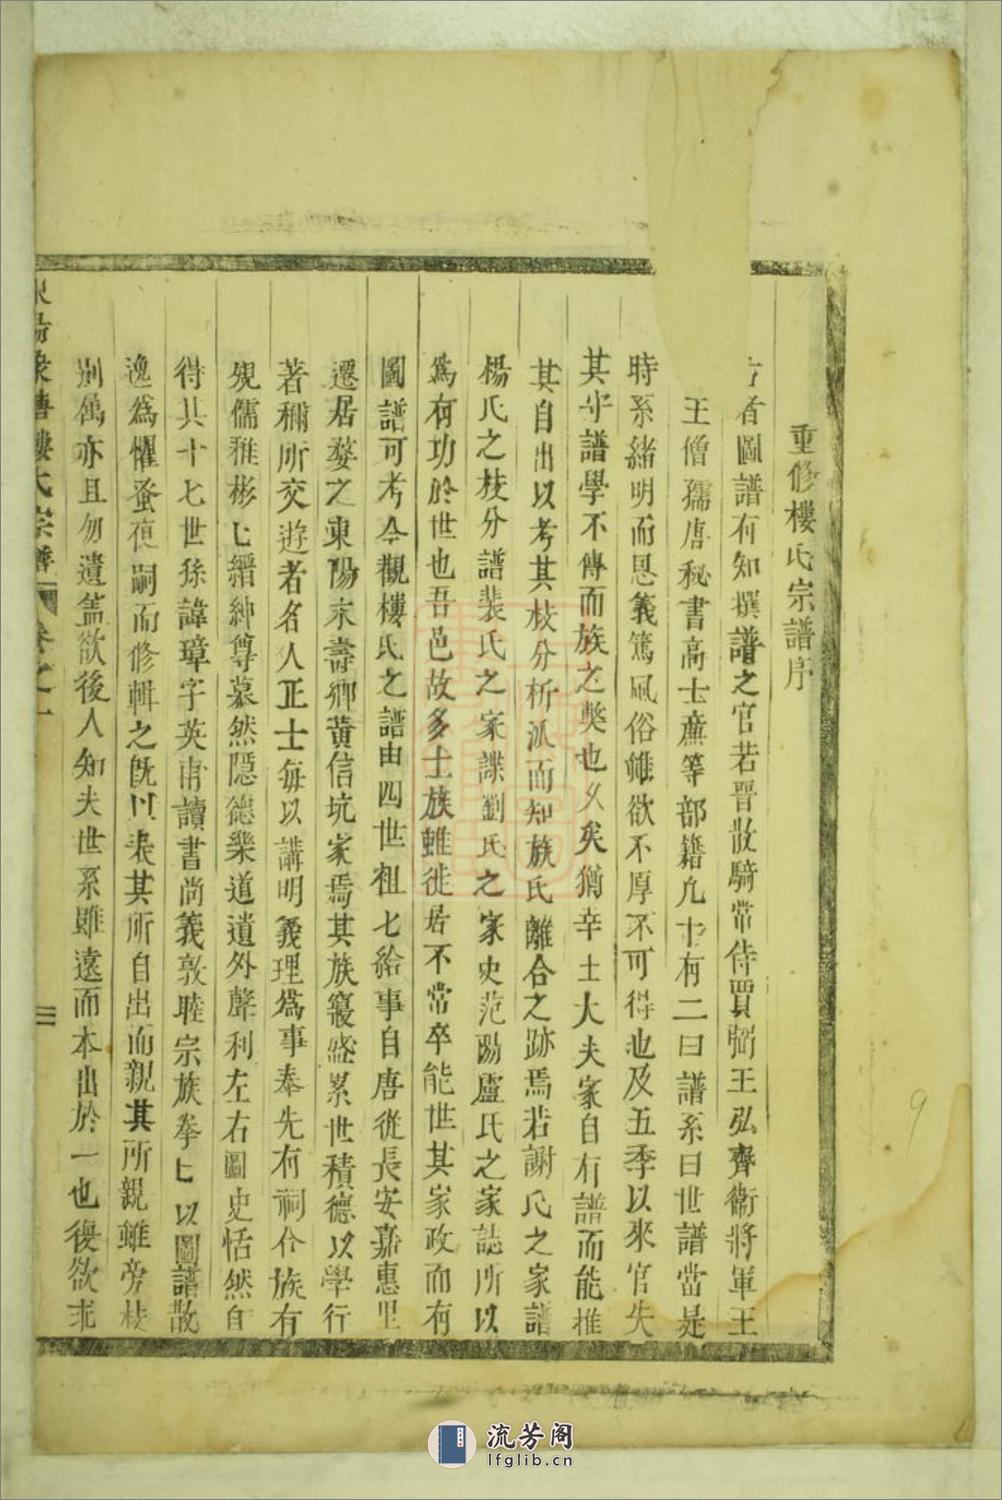 重修樓氏宗譜序
者圖譜有知撰譜之官若晉散騎常侍賈弼王弘齊衞將軍王
王僧孺唐秘書高士廉等部籍凢十有二曰譜系曰世譜當是
時系緒明而恩義篤風俗雖欲不厚不可得也及五季以來官失
其守譜學不傳而族之獘也乆矣猶幸士大夫家自有譜而能推
其自出以考其枝分析派而知族氏離合之跡焉若謝氏之家譜
楊氏之枝分譜裴氏之家諜劉氏之家史范陽盧氏之家誌所以
爲有功於世也吾邑故多士族雖徙居不常卒能世其家政而有
圖譜可考今觀樓氏之譜由四世祖七給事自唐從長安嘉惠里
遷居婺之東陽末壽鄉黄信坑家焉其族寖盛累世積德以學行
著稱所交遊者名人正士每以講明義理爲事奉先有祠合族有
規儒雅彬匕縉紳尊慕然隱德樂道遺外聲利左右圖史恬然自
得其十七世孫諱璋字英甫讀書尚義敦睦宗族拳匕以圖譜散
逸爲懼蚤夜嗣而修輯之旣以表其所自出而親其所親雖旁枝
別属亦且勿遺葢欲後人知夫世系雖遠而本出於一也復欲求
象塘樓氏宗譜 卷之一 三
9
流芳阁
lfglib.cn